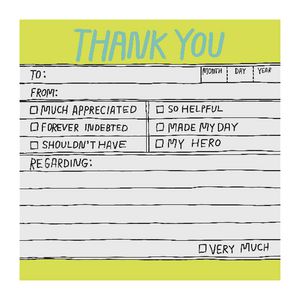 THANK YOU
TO: MONTH DAY YEAR
FROM:
MUCH APPRECIATED SO HELPFUL
FOREVER INDEBTED MADE MY DAY
SHOULDN'T HAVE MY HERO
REGARDING:
VERY MUCH